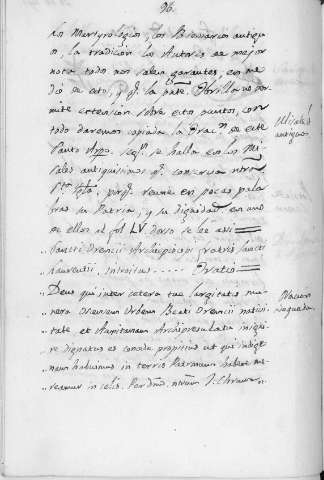 96.
los Martyrologios, los Breviarios antiguo-
s, la tradicion los Autores de mejor
nota todo nos salen garantes, en me-
dio de esto, y q.e la pnte. Obrilla no per-
mite extension sobre estos puntos, con
todo daremos copiada la Orac.n de este
Santo Arpo. seg.n se halla en los Mi-
sales antiquisimos q.e conserva ntra
Sta. Igla. porq.e reune en pocas pala-
bras su Patria, y su dignidad en uno
de ellos al fol. LV. dorso se lee assi
Misales
antiguos.
„ Sancti Orencii Archiepiscopi fratris Sancti
„ Laurentii, introitus ..... Oratio
„ Deus qui inter cetera tue largitatis mu-
„ nera Oscensem Urbem Beati Orencii nativi-
„ tate et Auxitanam Archipresulatu insigni-
„ re dignatus es concede propitius ut qui
„ habuimus in terris Patronum habere me-
„ reamur in celis. Per Dnum. ntrum J. Christum.